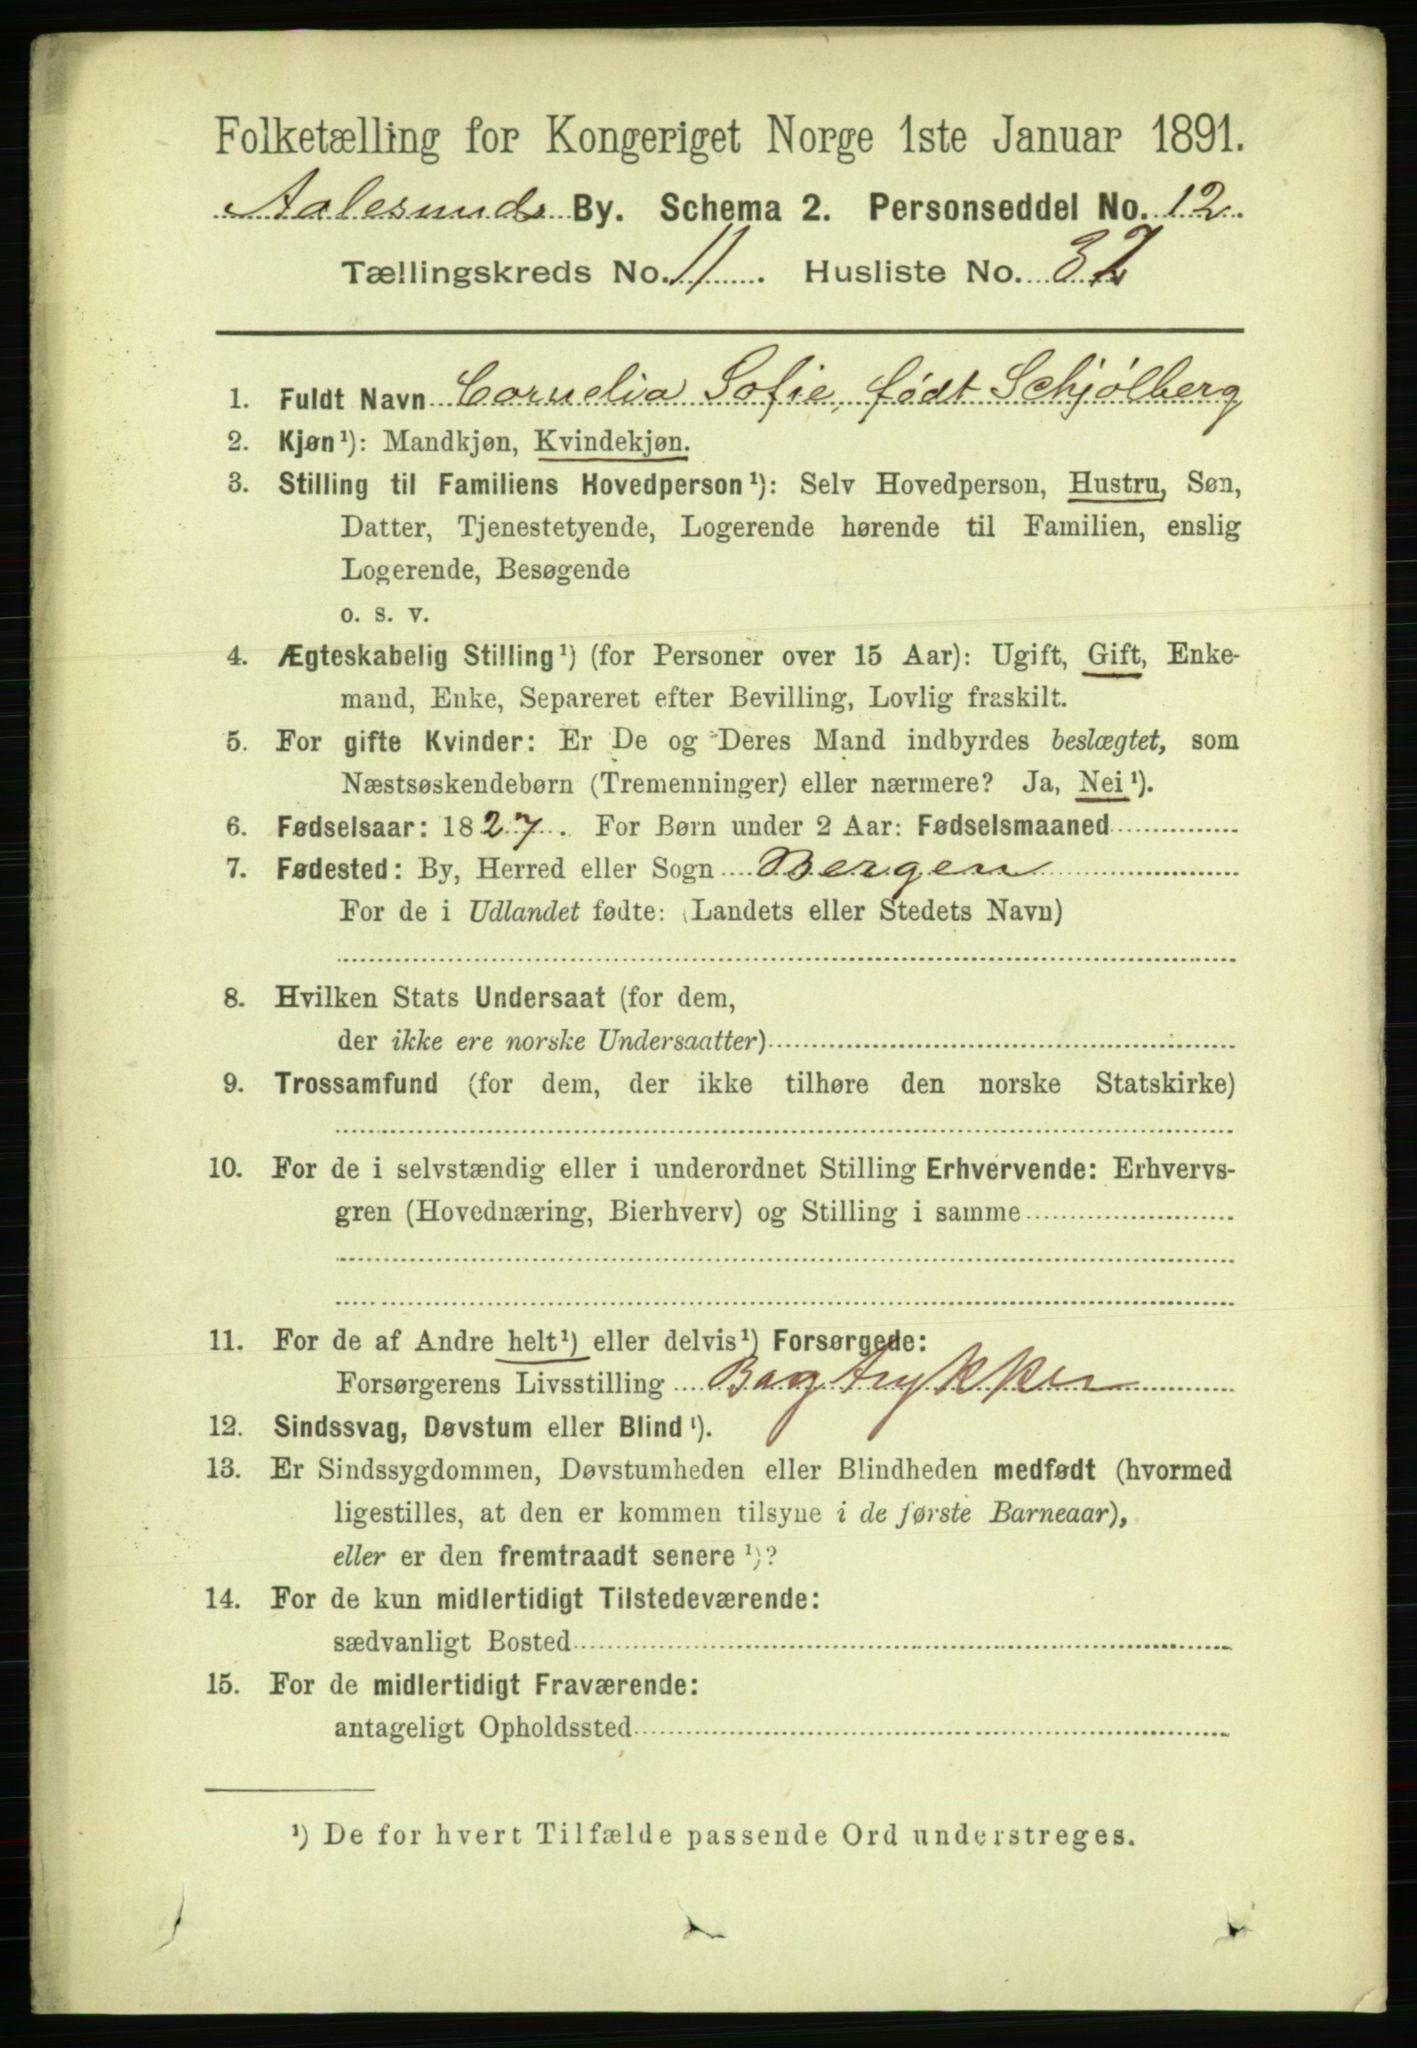 Folketælling for Kongeriget Norge 1ste Januar 1891.
Aalesunds By. Schema 2. Personseddel No. 12.
Tællingskreds No. 11. Husliste No. 37
1. Fuldt Navn Cornelia Sofie, født Schjølberg
2. Kjøn¹): Mandkjøn, Kvindekjøn.
3. Stilling til Familiens Hovedperson¹): Selv Hovedperson, Hustru, Søn,
Datter, Tjenestetyende, Logerende hørende til Familien, enslig
Logerende, Besøgende
o. s. v.
4. Ægteskabelig Stilling¹) (for Personer over 15 Aar): Ugift, Gift, Enke-
mand, Enke, Separeret efter Bevilling, Lovlig fraskilt.
5. For gifte Kvinder: Er De og Deres Mand indbyrdes beslægtet, som
Næstsøskendebørn (Tremenninger) eller nærmere? Ja, Nei¹).
6. Fødselsaar: 1827. For Børn under 2 Aar: Fødselsmaaned
7. Fødested: By, Herred eller Sogn Bergen
For de i Udlandet fødte: (Landets eller Stedets Navn)
8. Hvilken Stats Undersaat (for dem,
der ikke ere norske Undersaatter)
9. Trossamfund (for dem, der ikke tilhøre den norske Statskirke)
10. For de i selvstændig eller i underordnet Stilling Erhvervende: Erhvervs-
gren (Hovednæring, Bierhverv) og Stilling i samme
11. For de af Andre helt¹) eller delvis¹) Forsørgede:
Forsørgerens Livsstilling Bogtrykker
12. Sindssvag, Døvstum eller Blind¹).
13. Er Sindssygdommen, Døvstumheden eller Blindheden medfødt (hvormed
ligestilles, at den er kommen tilsyne i de første Barneaar),
eller er den fremtraadt senere¹)?
14. For de kun midlertidigt Tilstedeværende:
sædvanligt Bosted
15. For de midlertidigt Fraværende:
antageligt Opholdssted
¹) De for hvert Tilfælde passende Ord understreges.